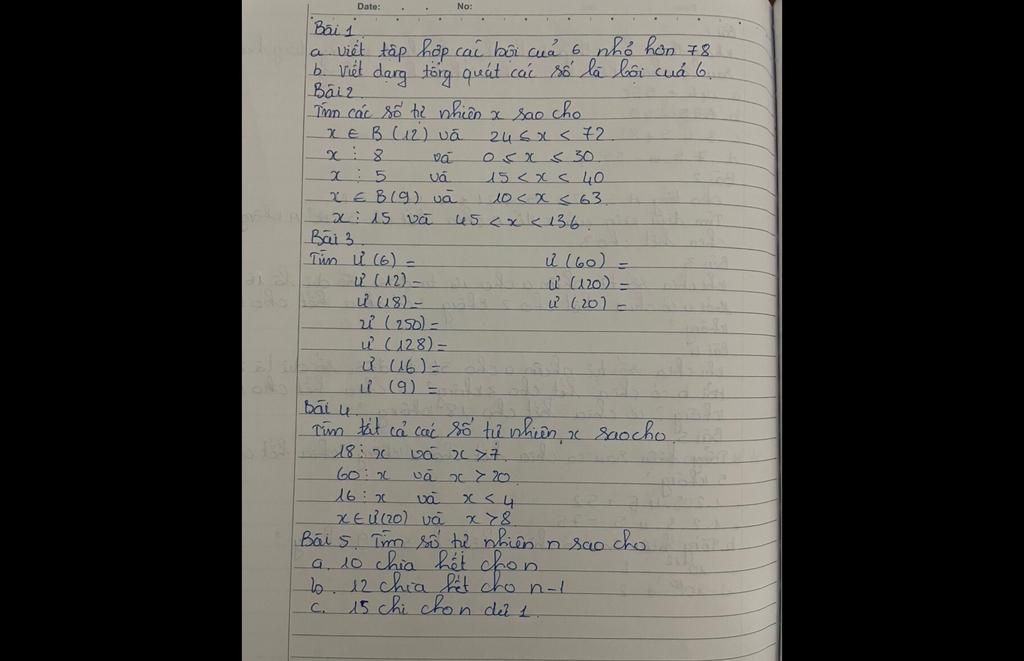 Date: . . No:
Bài 1
a. viết tập hợp các bội của 6 nhỏ hơn 78
b. Viết dạng tổng quát các số là bội của 6.
Bài 2
Tìm các số tự nhiên x sao cho
x ∈ B (12) và 24 ≤ x < 72
x ⋮ 8 và 0 ≤ x ≤ 30
x ⋮ 5 và 15 < x < 40
x ∈ B(9) và 10 < x ≤ 63
x ⋮ 15 và 45 < x < 136
Bài 3
Tìm Ư (6) = Ư (60) =
Ư (12) = Ư (120) =
Ư (18) = Ư (20) =
Ư (250) =
Ư (128) =
Ư (16) =
Ư (9) =
Bài 4
Tìm tất cả các số tự nhiên x sao cho
18 ⋮ x và x > 7
60 ⋮ x và x > 20
16 ⋮ x và x < 4
x ∈ Ư(20) và x > 8
Bài 5. Tìm số tự nhiên n sao cho
a. 10 chia hết cho n
b. 12 chia hết cho n-1
c. 15 chi cho n dư 1